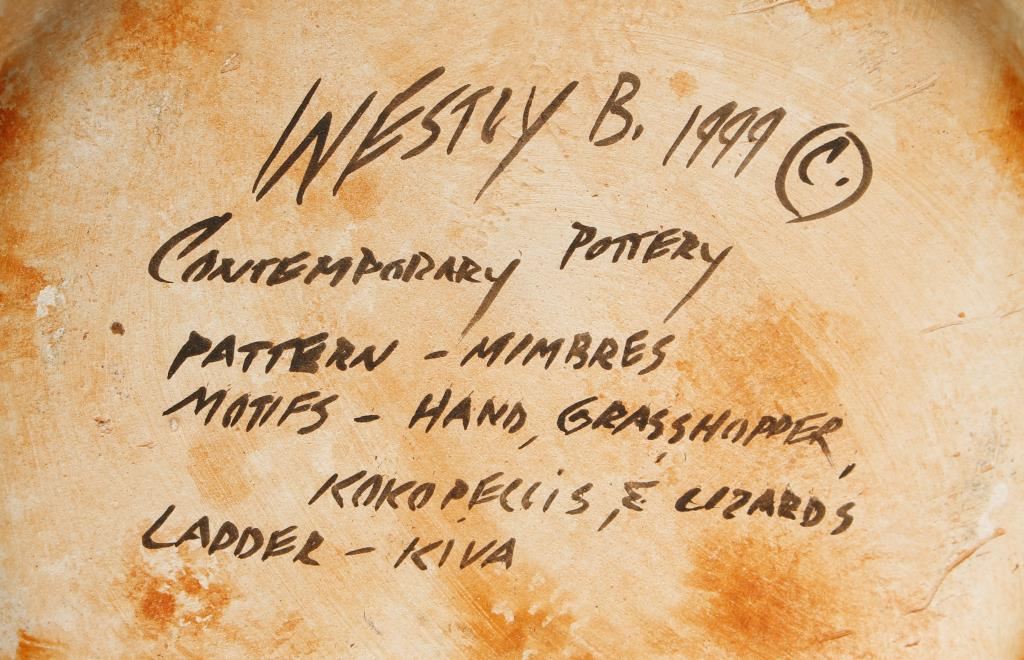 WESTLY B. 1999 ©
CONTEMPORARY POTTERY
PATTERN - MIMBRES
MOTIFS - HAND, GRASSHOPPER,
KOKOPELLIS, & LIZARDS
LADDER - KIVA